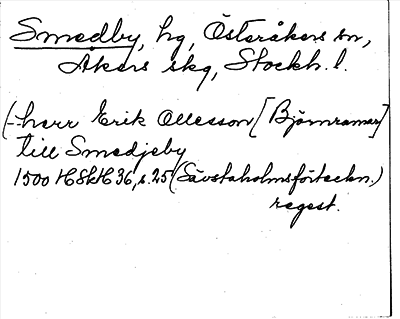 Smedby, hg, Österåkers sn,
Åkers skg, Stockh. l.
(-herr Erik Ollesson [Björnramar]
till Smedjeby
1500 HSkH 36, s. 25 (Sävstaholmsförteckn.)
regest.